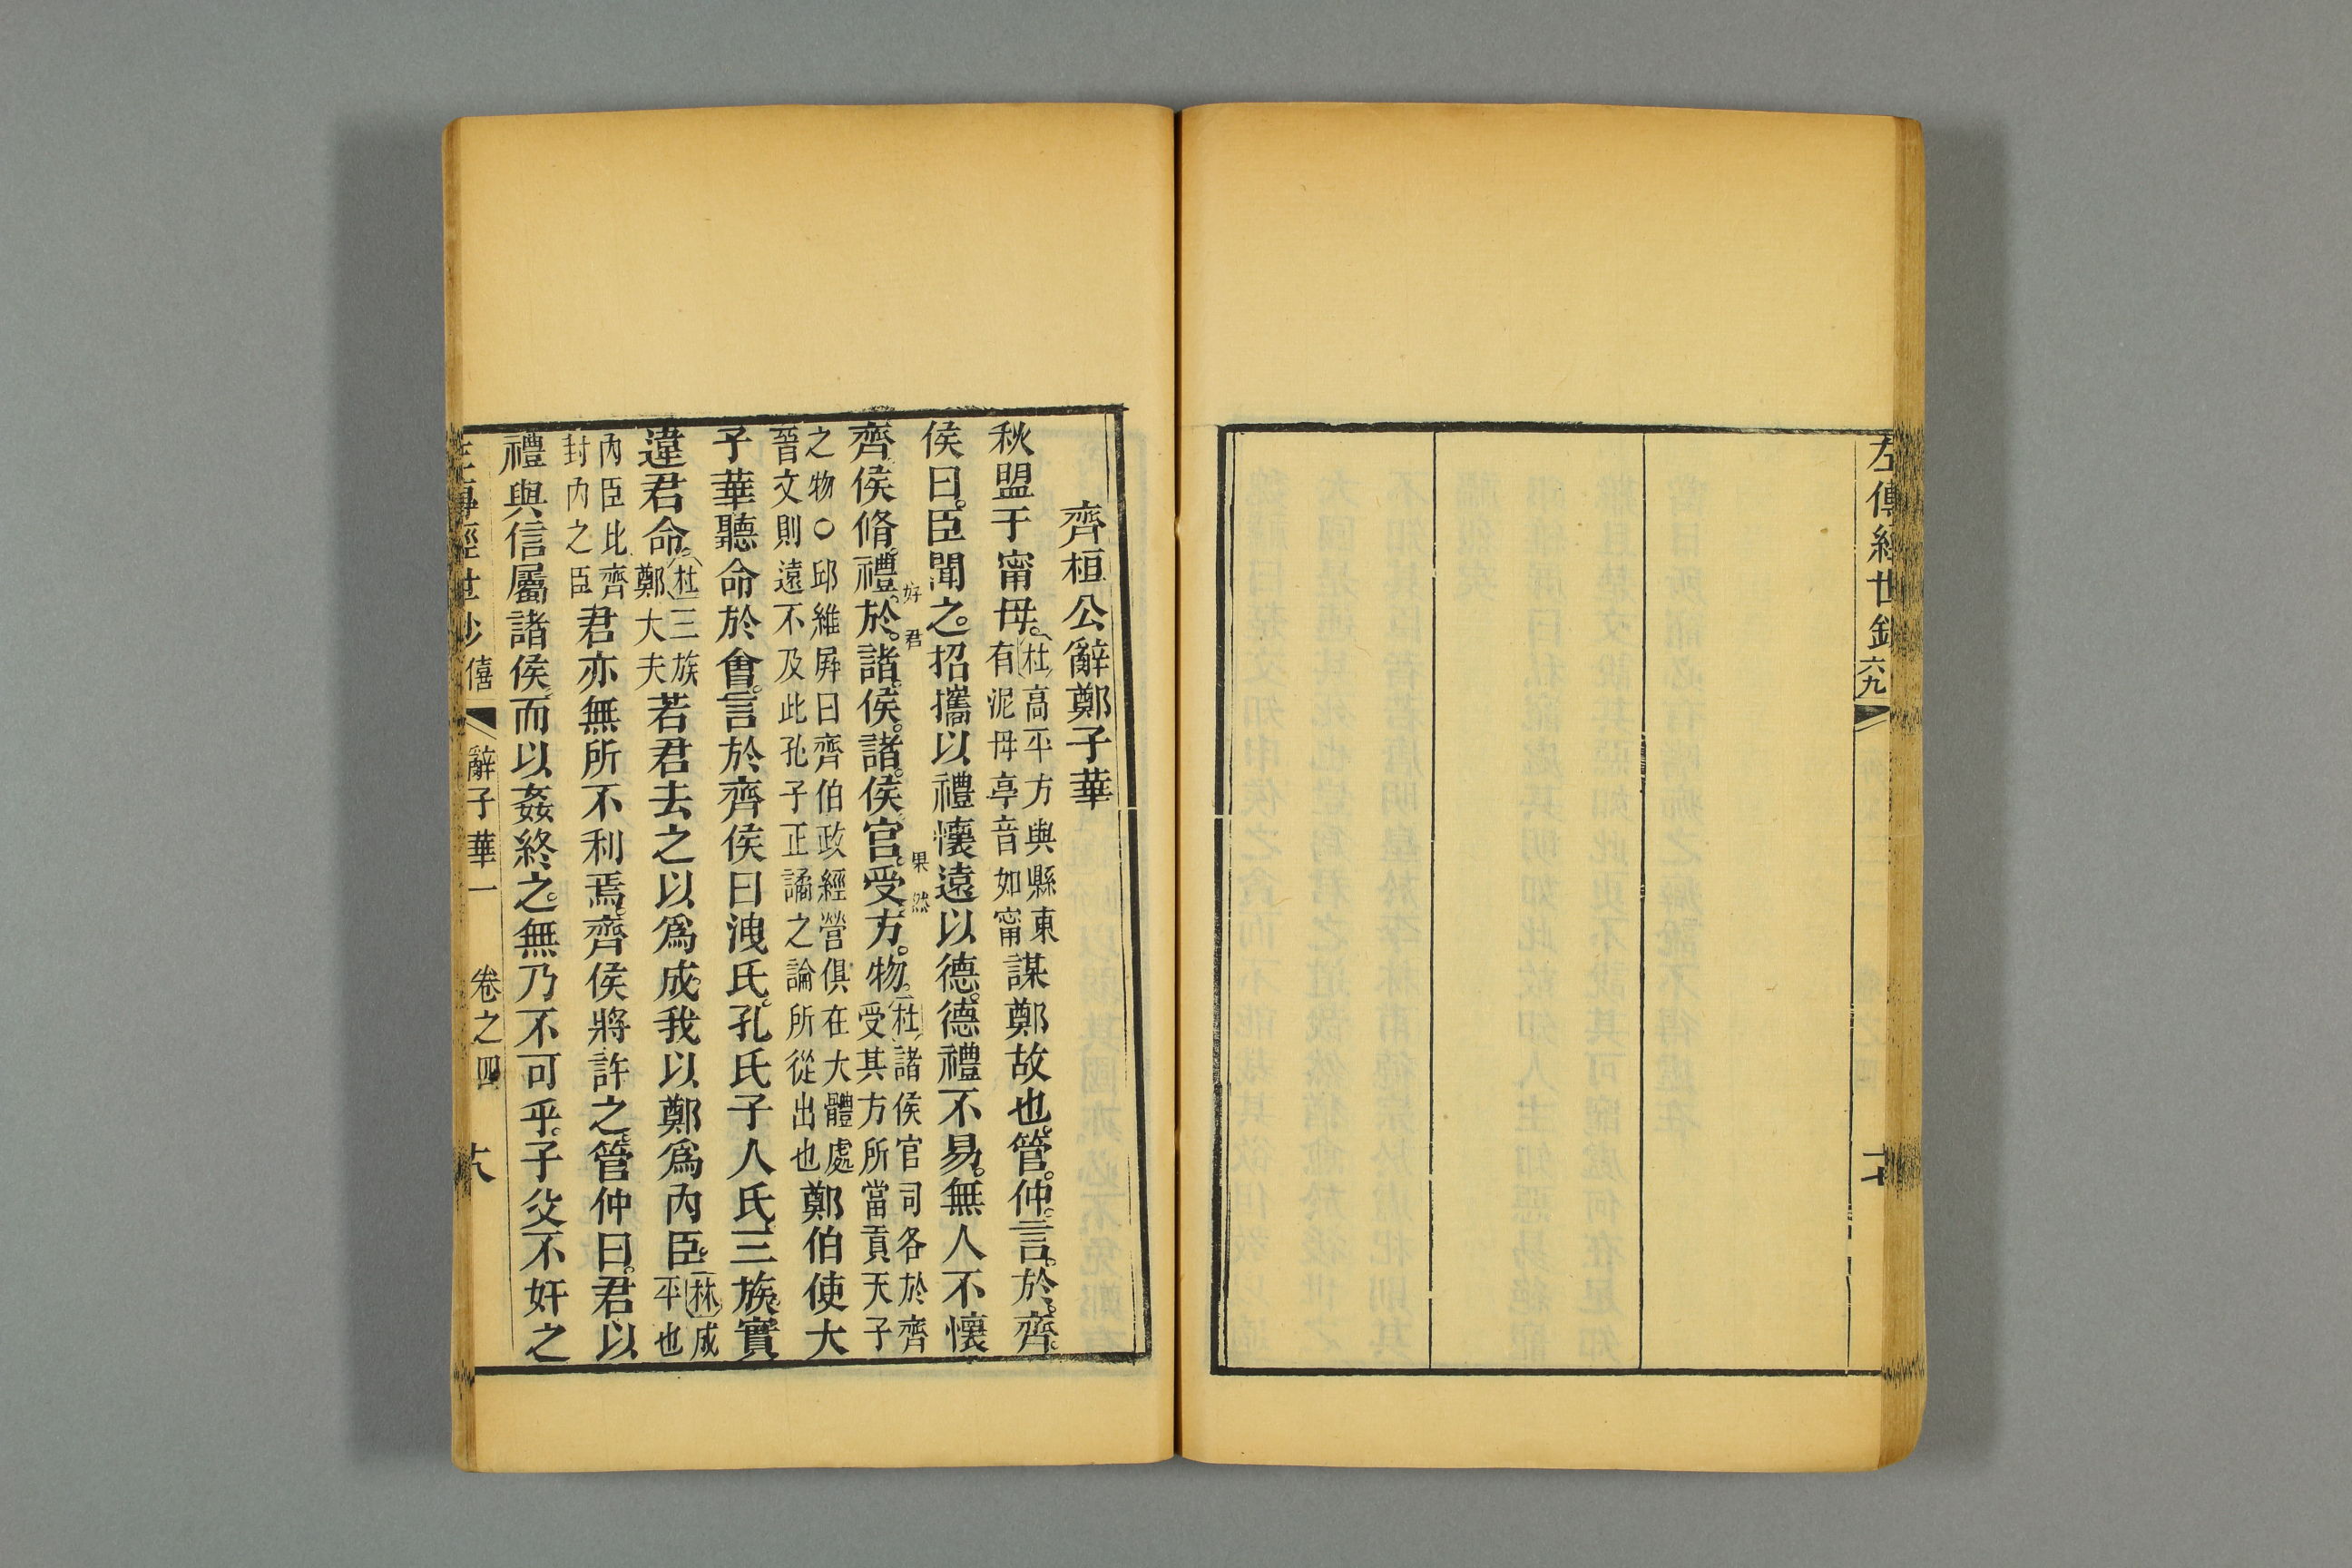 左傳經世鈔
六九
齊桓公辭鄭子華
秋盟于甯母。杜高平方與縣東有泥母亭音如甯謀鄭故也。管。仲。言。於。齊。
侯曰。臣聞之。招攜以禮懷遠以德。德禮不易。無人不懷
齊侯脩禮。於。諸。侯。諸。侯。官。受。方。物。杜諸侯官司各於齊受其方所當貢天子
好君
果然
之物○邱維屏曰齊伯政經營俱在大體處晉文則遠不及此孔子正譎之論所從出也鄭伯使大
子華聽命於會。言於齊侯曰洩氏。孔氏子人氏三族。實
違君命。杜三族鄭大夫若君去之以爲成。我以鄭爲內臣。林成平也
內臣比齊封內之臣君亦無所不利焉。齊侯將許之。管仲曰。君以
禮與信屬諸侯。而以姦終之。無乃不可乎。子父不奸之
左傳經世鈔 僖 辭子華一 卷之四 十八